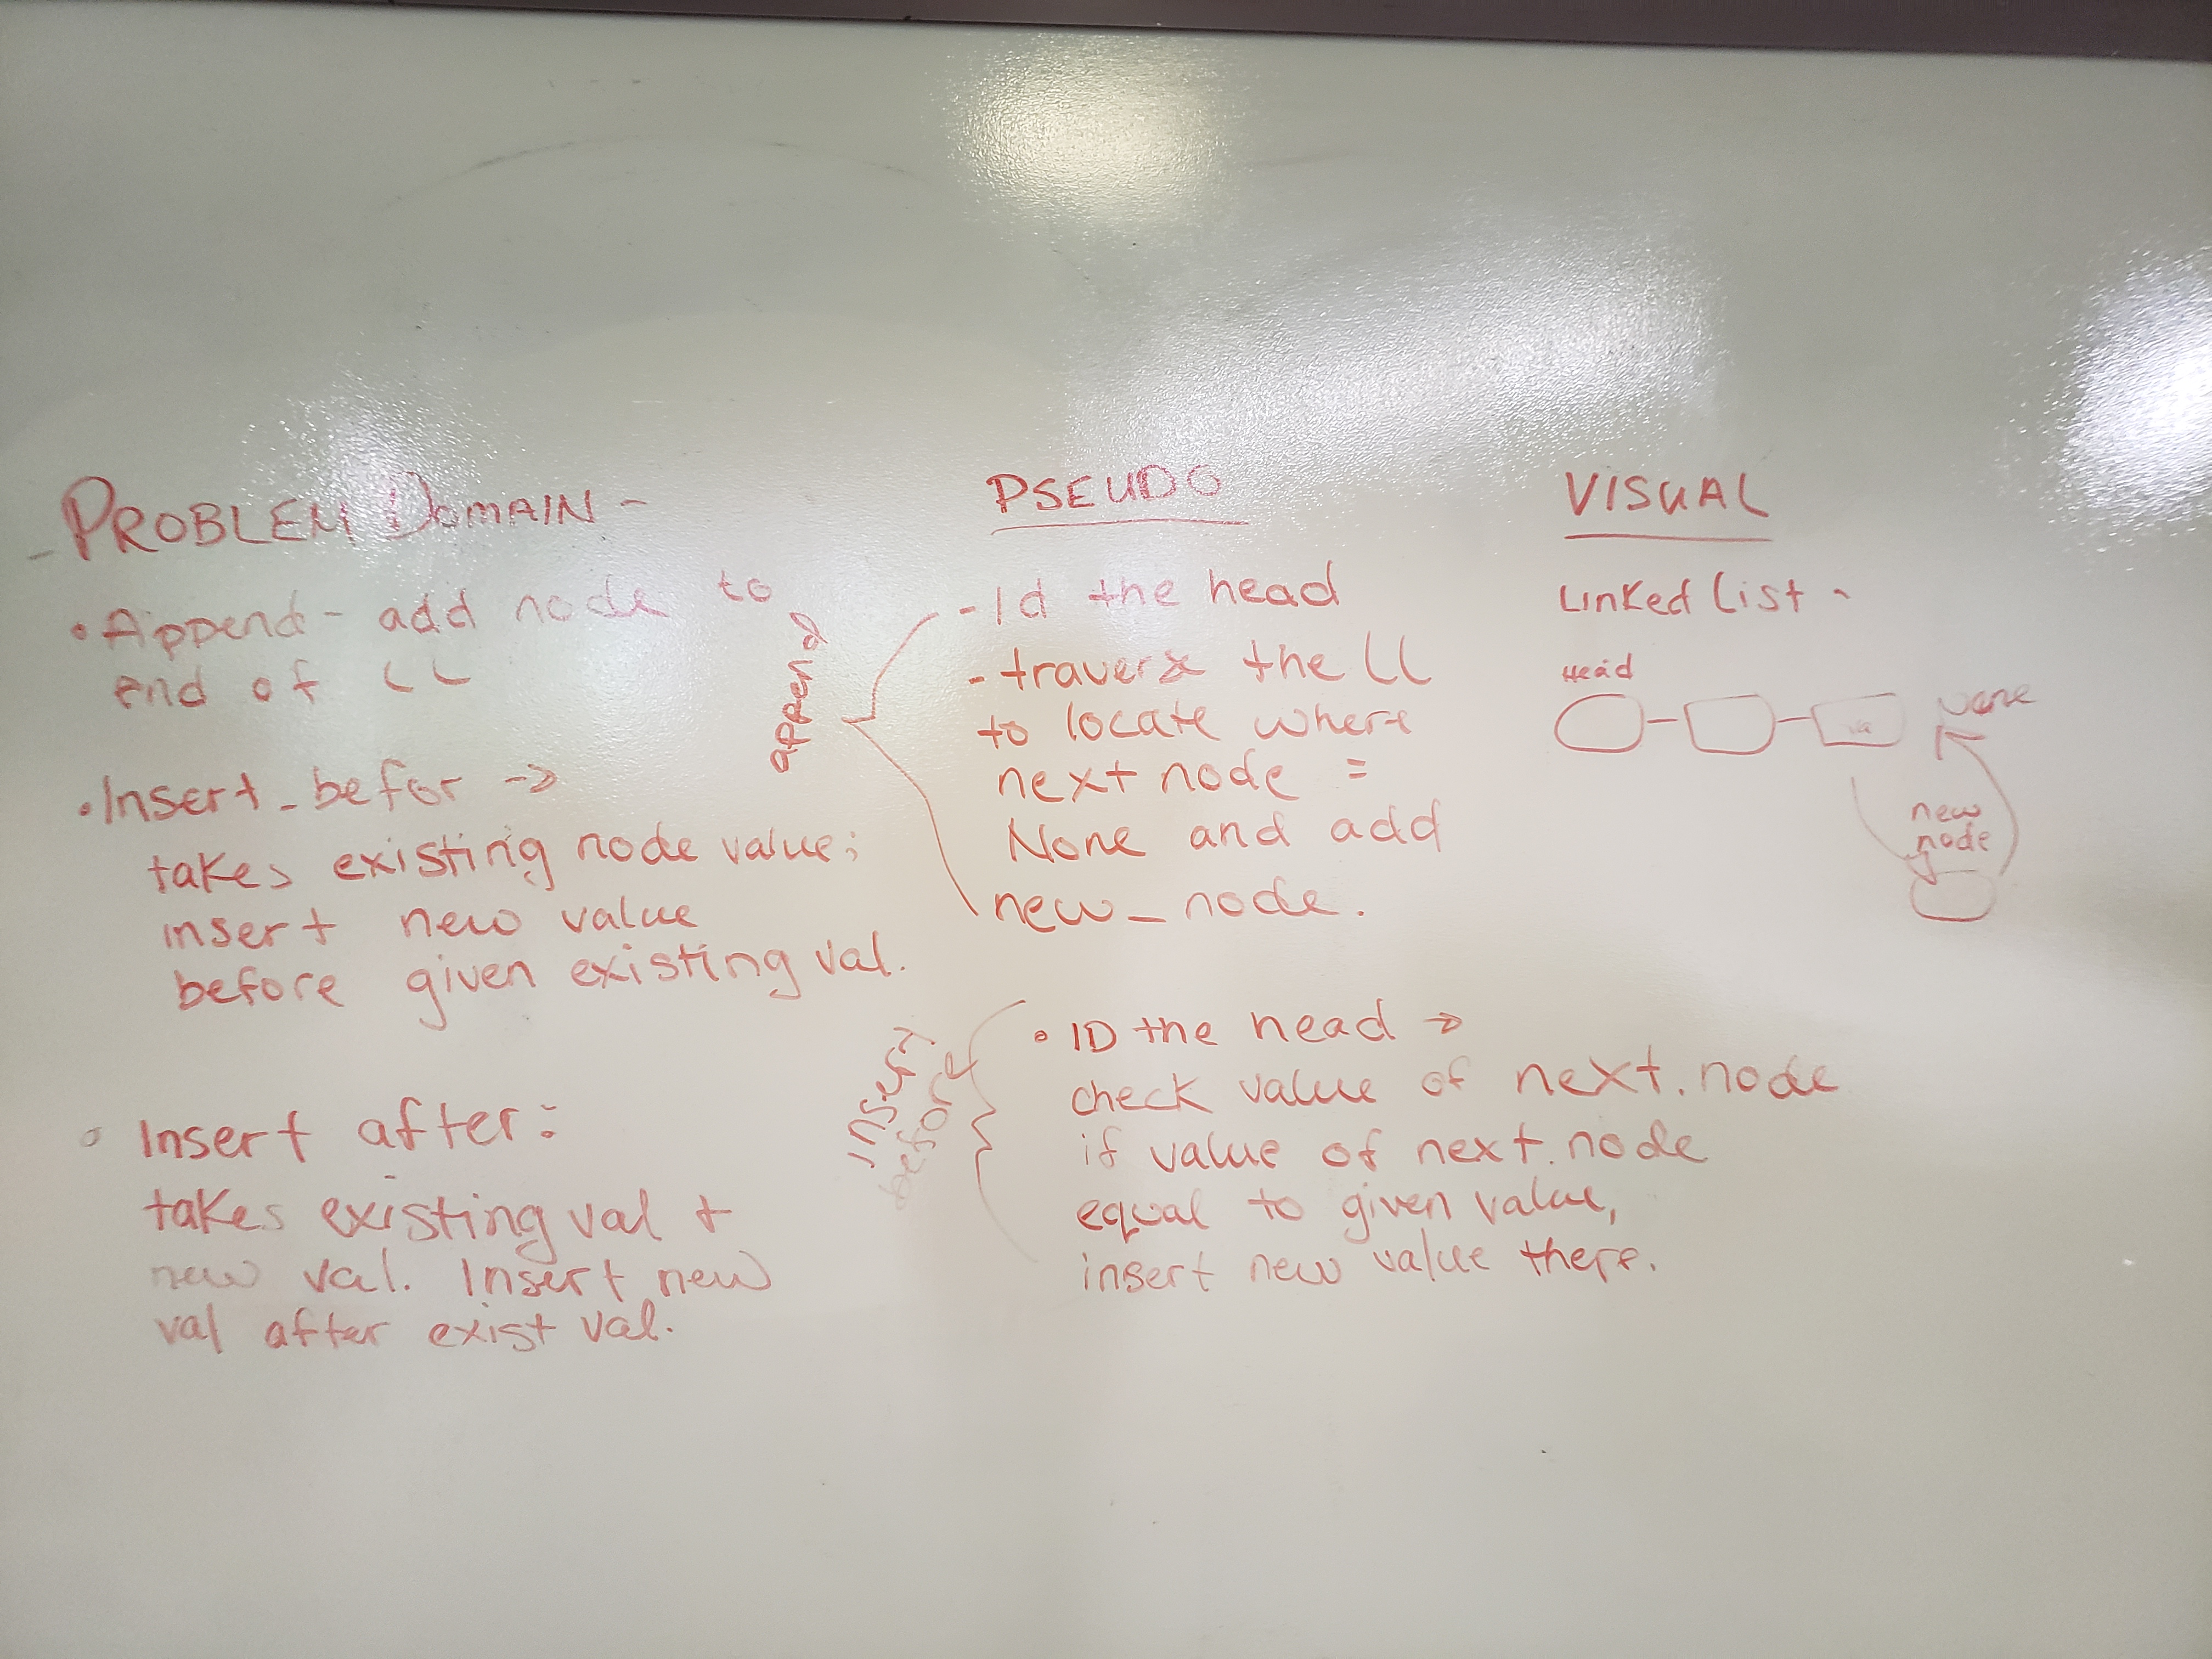 PROBLEM DOMAIN -
• Append - add node to
end of LL
• Insert_befor ->
takes existing node value;
insert new value
before given existing val.
• Insert after:
takes existing val +
new val. Insert new
val after exist val.
PSEUDO
append
- Id the head
- traverse the LL
to locate where
next node =
None and add
new_node.
insert
before
• ID the head ->
check value of next.node
if value of next.node
equal to given value,
insert new value there.
VISUAL
Linked list -
Head
None
new
node